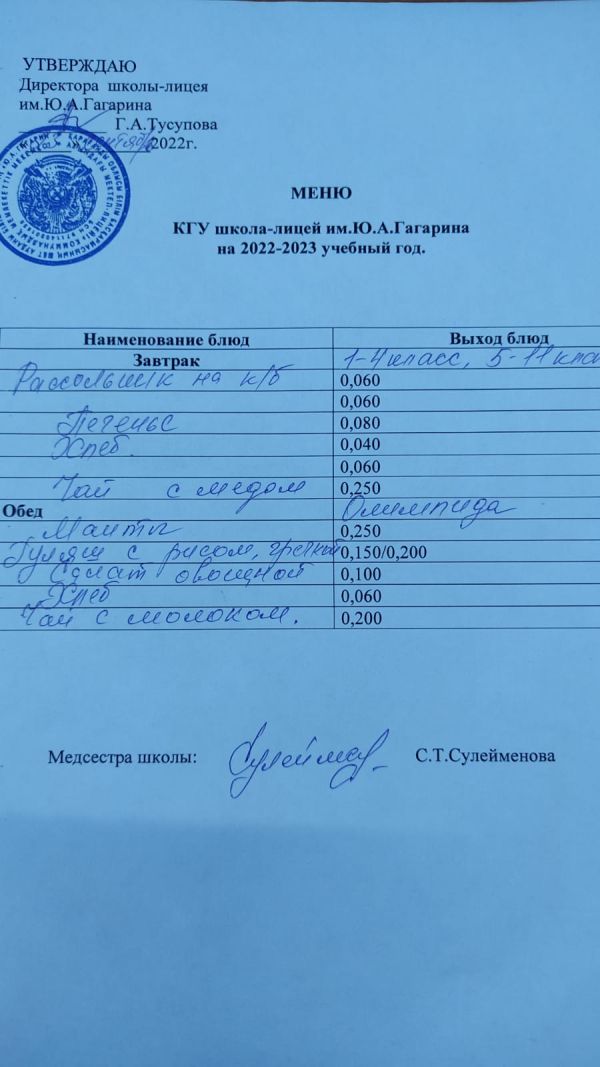 УТВЕРЖДАЮ
Директора школы-лицея
им.Ю.А.Гагарина
Г.А.Тусупова
2022г.
МЕНЮ
КГУ школа-лицей им.Ю.А.Гагарина
на 2022-2023 учебный год.
Наименование блюд Выход блюд
Завтрак 1-4 класс, 5-11 клас
Рассольник на к/б 0,060
0,060
Печенье 0,080
Хлеб. 0,040
0,060
Чай с медом 0,250
Обед Олимпида
Манты 0,250
Гуляш с рисом, гречкой 0,150/0,200
Салат овощной 0,100
Хлеб 0,060
Чай с молоком. 0,200
Медсестра школы: С.Т.Сулейменова